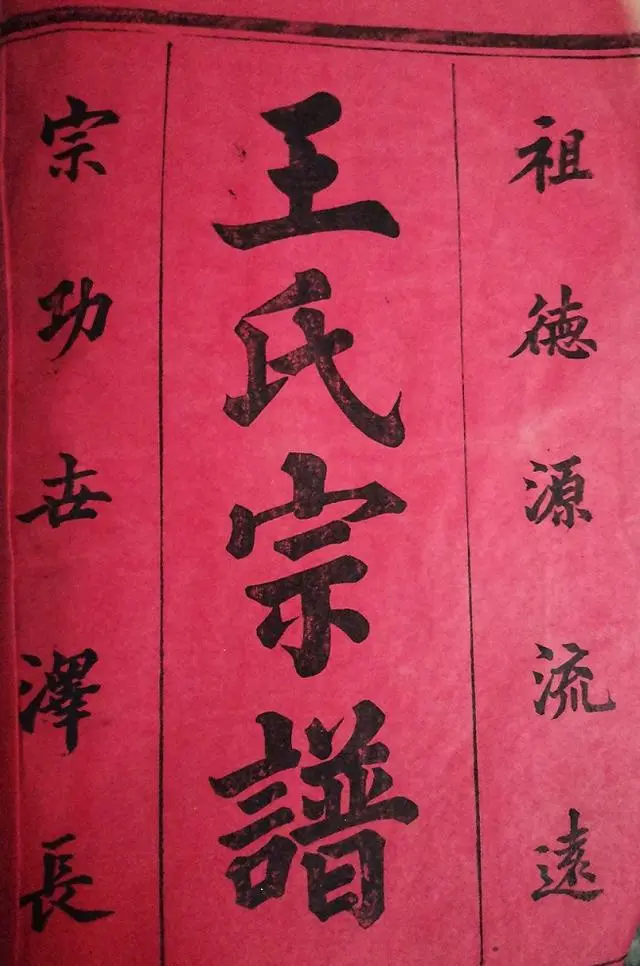 祖德源流遠
王氏宗譜
宗功世澤長